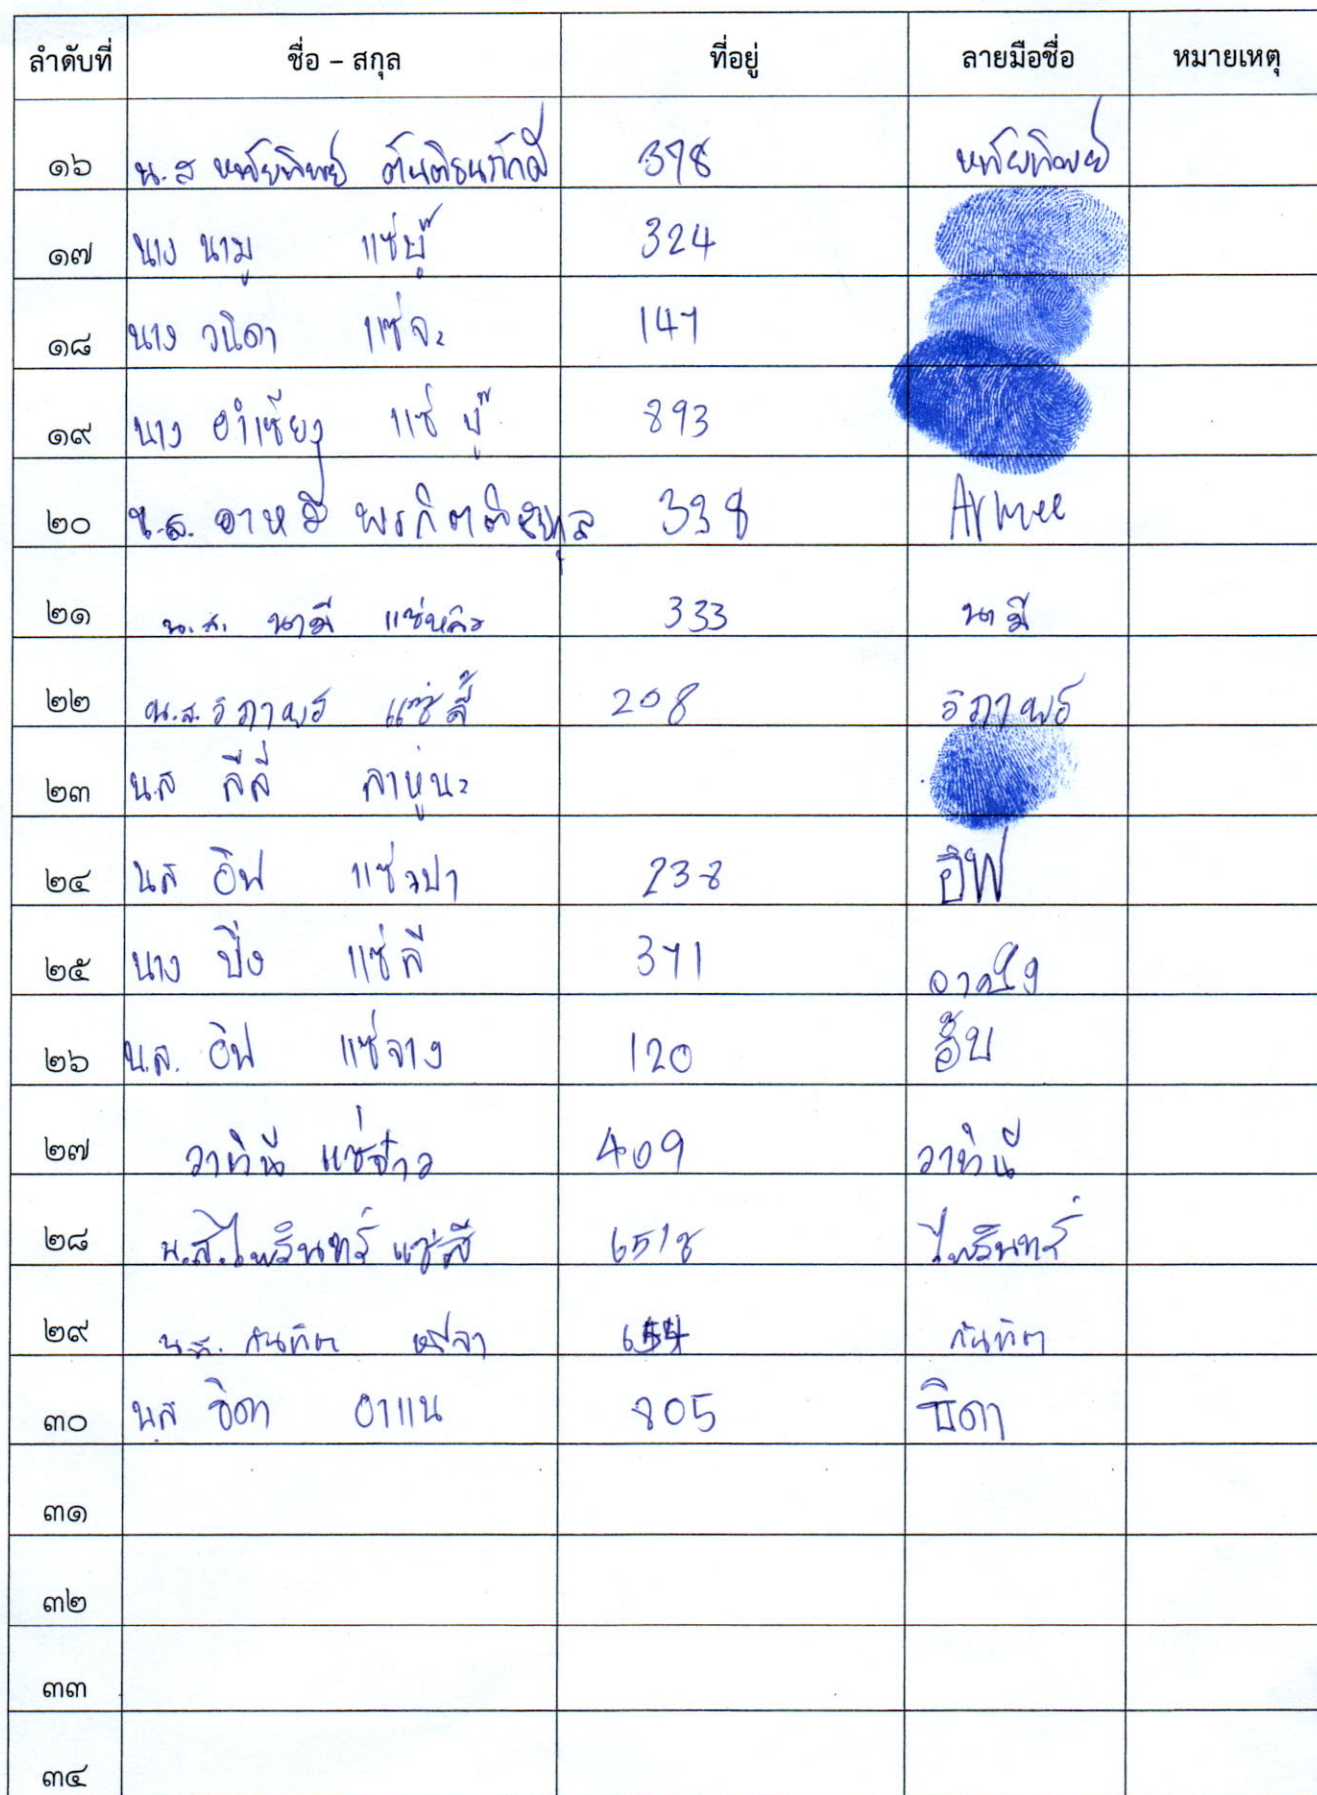 ลำดับที่ ชื่อ - สกุล ที่อยู่ ลายมือชื่อ หมายเหตุ
๑๖ น.ส หทัยทิพย์ ตันติธนภักดี 378 หทัยทิพย์
๑๗ นาง นามู แซ่บู๊ 324
๑๘ นาง วนิดา แซ่จะ 147
๑๙ นาง อำเซียง แซ่ บู๊ 893
๒๐ น.ส. อาหมี พรกิตติ 338 Armee
๒๑ น.ส. นามี 333 นามี
๒๒ น.ส. วิภาพร แซ่ลี้ 208 วิภาพร
๒๓ น.ส ลีลี่ ลาหู่นะ
๒๔ น.ส อิฟ แซ่วปา 238 อิฟ
๒๕ นาง ปิง แซ่ลี 371
๒๖ น.ส. อิฟ แซ่จาง 120
๒๗ วาทินี แซ่จ๋าว 409 วาทินี
๒๘ น.ส. ไพรินทร์ แซ่ลี ไพรินทร์
๒๙ น.ส.
๓๐ น.ส ธิดา อาแน 805 ธิดา
๓๑
๓๒
๓๓
๓๔